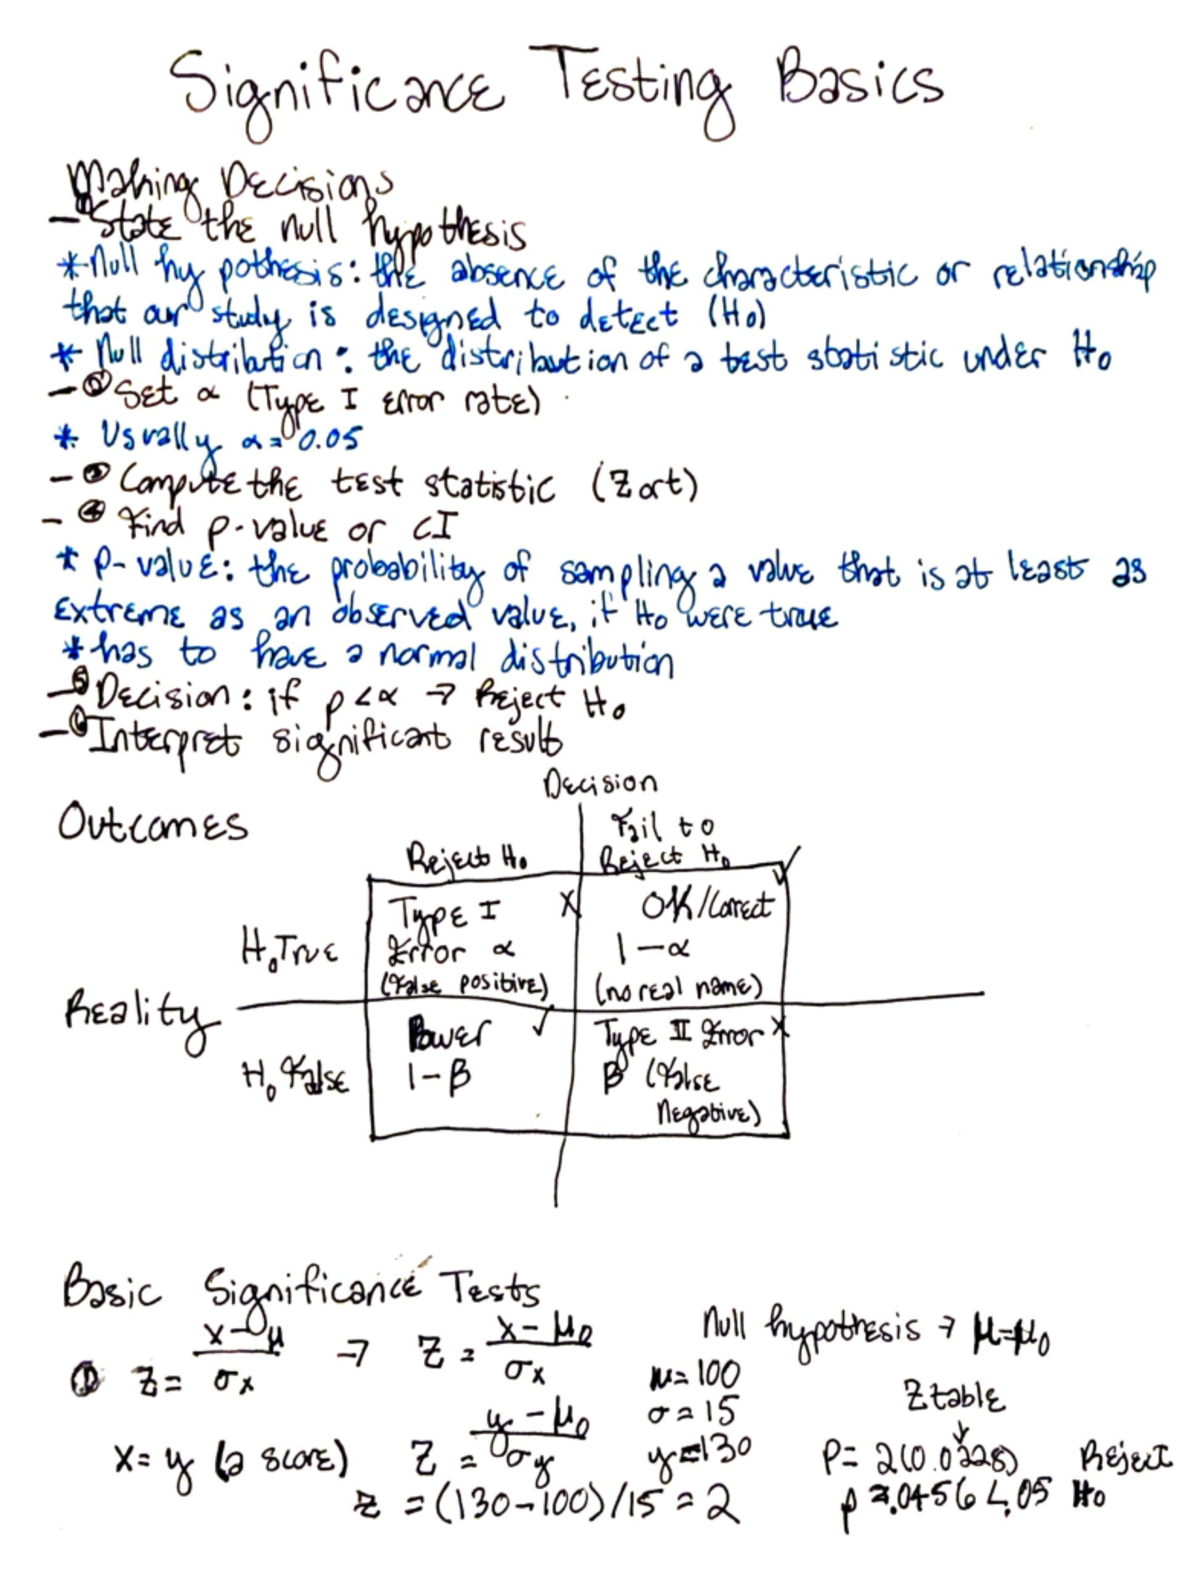 Significance Testing Basics
Making Decisions
- ① State the null hypothesis
* Null hypothesis: the absence of the characteristic or relationship
that our study is designed to detect (H₀)
* Null distribution: the distribution of a test statistic under H₀
- ② Set α (Type I error rate)
* Usually α = 0.05
- ③ Compute the test statistic (Z or t)
- ④ Find p-value or CI
* p-value: the probability of sampling a value that is at least as
extreme as an observed value, if H₀ were true
* has to have a normal distribution
- ⑤ Decision: if p < α → Reject H₀
- ⑥ Interpret significant results
Decision
Outcomes
Reject H₀
Fail to
Reject H₀ ✓
H₀ True
Type I X
Error α
(False positive)
OK/Correct
1 - α
(no real name)
Reality
H₀ False
Power ✓
1 - β
Type II Error X
β (False
Negative)
Basic Significance Tests
① Z = (x - μ)/σx → Z = (x - μ₀)/σx
Null hypothesis → μ = μ₀
x = y (a score) Z = (y - μ₀)/σy
z = (130-100)/15 = 2
μ = 100
σ = 15
y = 130
Z table
↓
P = 2(0.0228) Reject
p = .0456 < .05 H₀